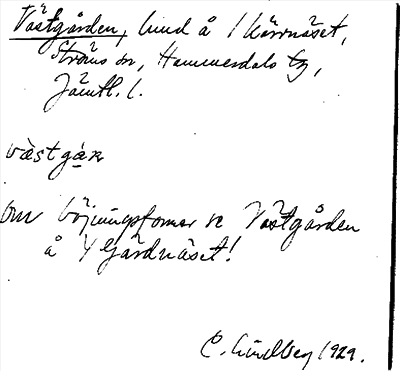 Västgården, hmd å 1 Kärrnäset,
Ströms sn, Hammerdals tg,
Jämtl. l.
västgàṛn
om böjningsformer se Västgården
å 4 Gärdnäset!
C. Lindberg 1929.